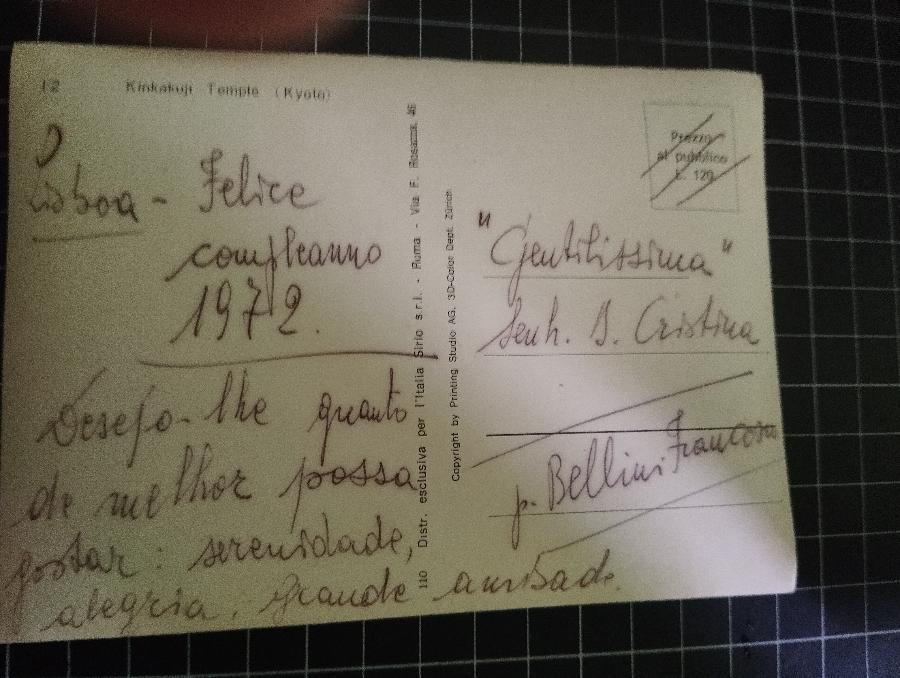 12 Kinkakuji Temple (Kyoto)
Lisboa - Felice
compleanno
1972.
Desejo-lhe quanto
de melhor possa
gostar: serenidade,
alegria, grande amisade.
110 Distr. esclusiva per l'Italia Sirio s.r.l. - Roma - Via F. Rosazza, 46
Copyright by Printing Studio AG. 3D-Color Dept. Zürich
Prezzo
al pubblico
L. 120
"Gentilissima"
Senh. D. Cristina
p. Bellini Francesco